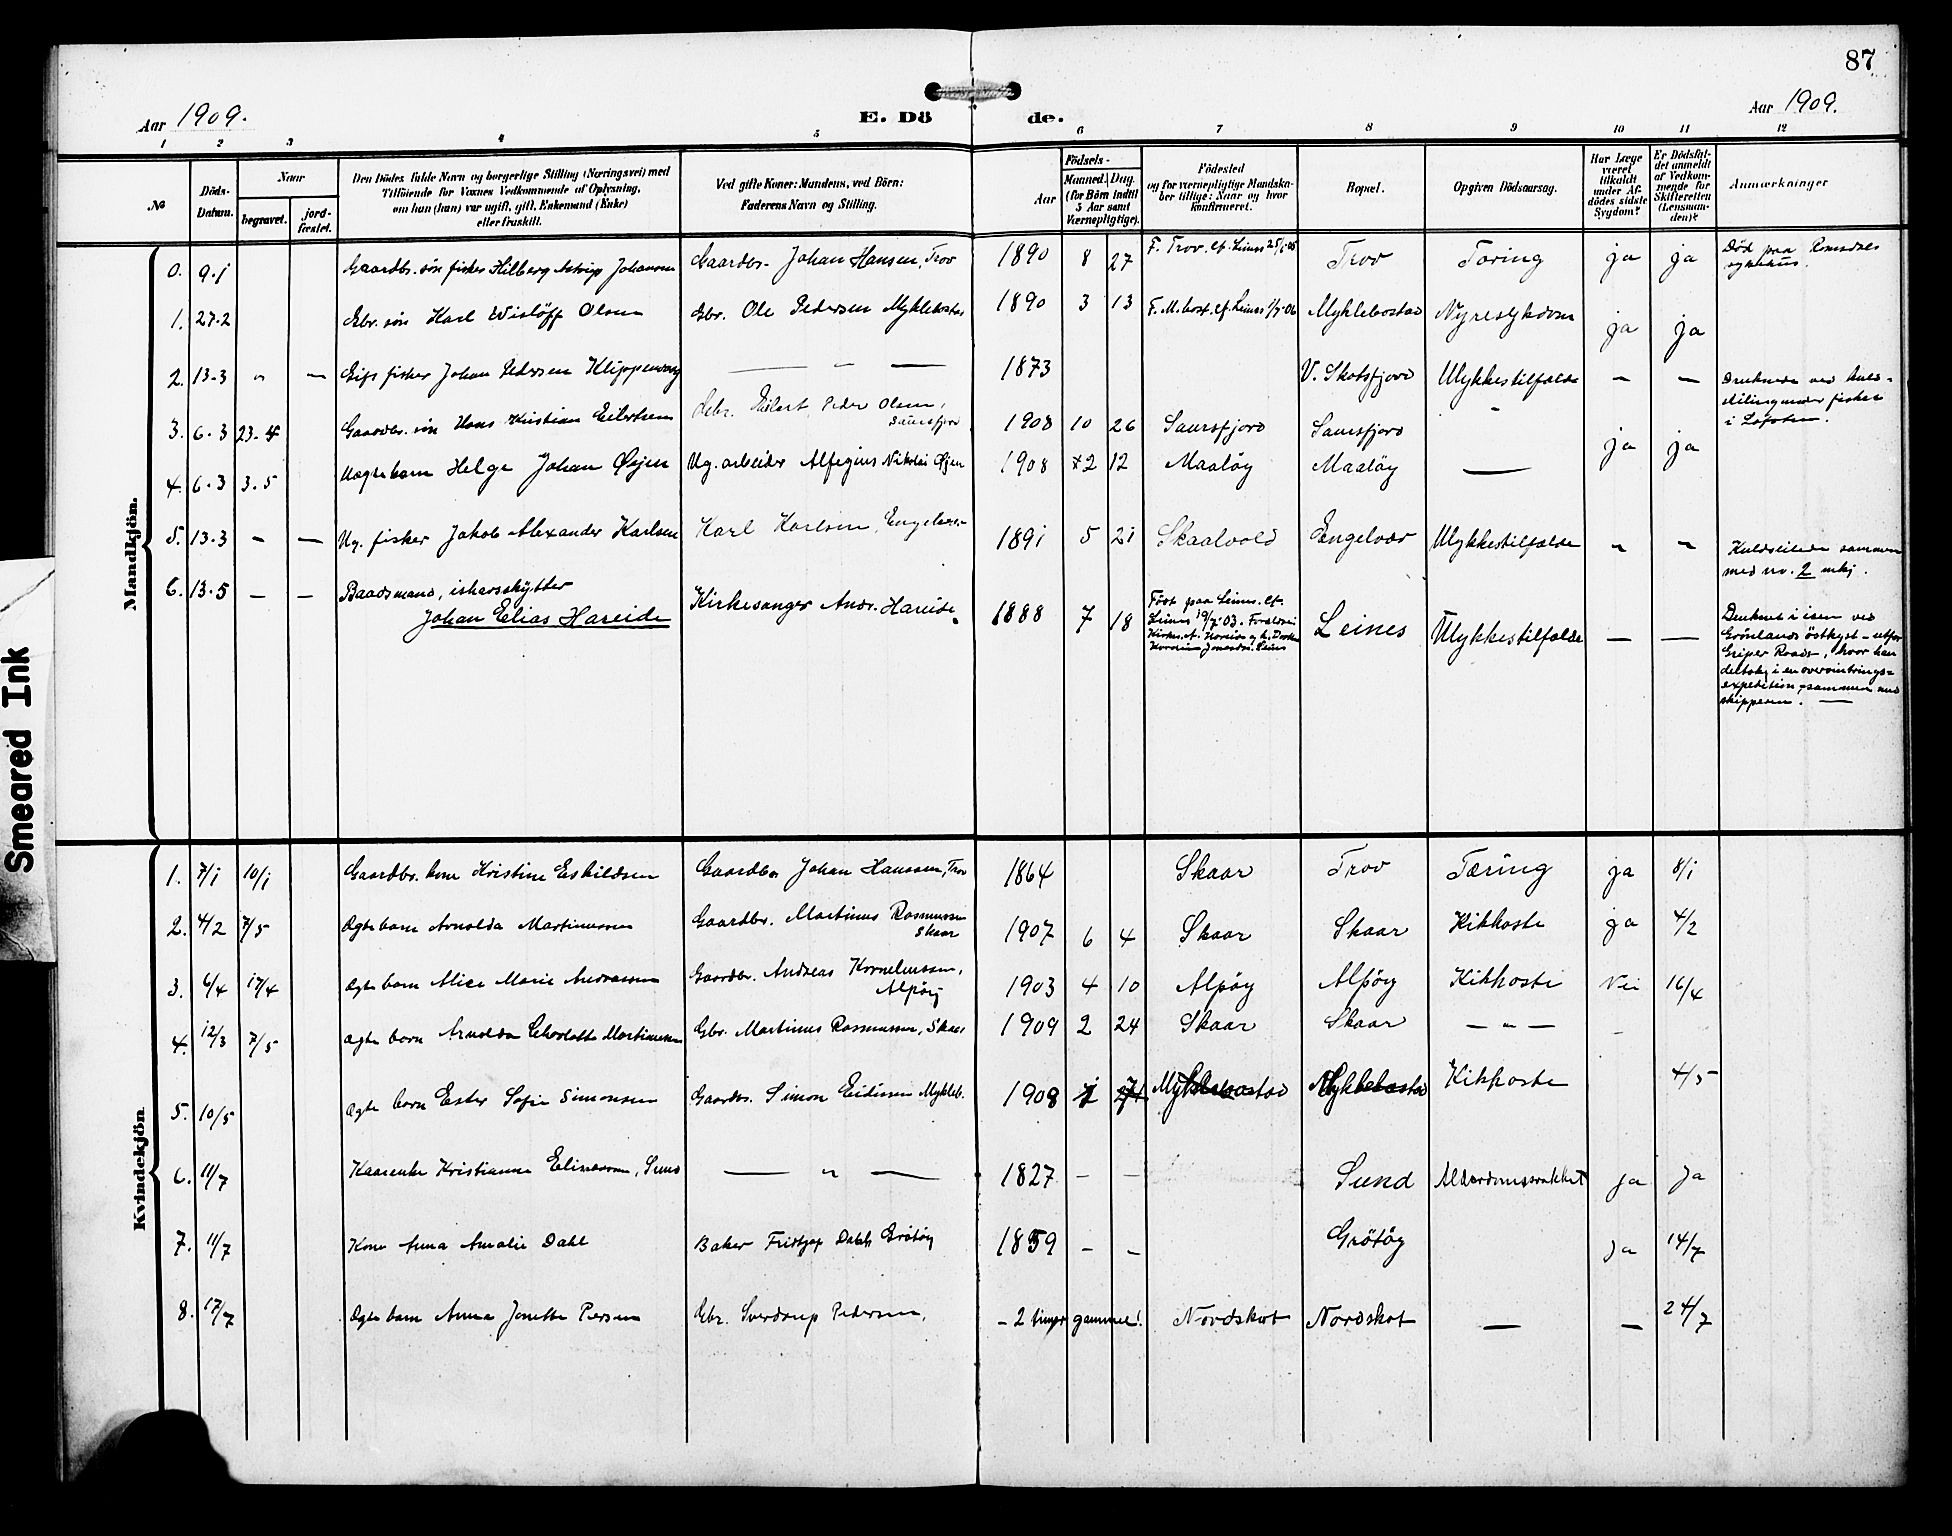 87
Aar 1909.
E. Dö de.
Aar 1909.
1 2 3 4 5 6 7 8 9 10 11 12
No
Döds-Datum.
Naar
begravet.
jord-fæstet.
Den Dödes fulde Navn og borgerlige Stilling (Næringsvei) med
Tilföiende for Voxnes Vedkommende af Oplysning,
om hun (han) var ugift, gift, Enkemand (Enke)
eller fraskilt.
Ved gifte Koner: Mandens, ved Börn:
Faderens Navn og Stilling.
Födsels-
Aar
Maaned. Dag.
(for Börn indtil
5 Aar samt
Værnepligtige).
Födested
og for værnepligtige Mandska-
ber tillige: Naar og hvor
konfirmeret.
Bopæl.
Opgiven Dödsaarsag.
Har Læge
været
tilkaldt
under Af-
dödes sidste
Sygdom?
Er Dödsfal-
det anmeldt
af Vedkom-
mende for
Skifteretten
(Lensman-
den)?
Anmærkninger
Mandkjön.
0. 9.1 Gaardbr. søn fisker Hilberg Astrup Johansen Gaardbr. Johan Hansen, Trov 1890 8 27 F. Trov. Trov Tæring ja ja Død paa Romsdals sykehus.
1. 27.2 Gbr. søn Karl Wisløff Olsen Gbr. Ole Pedersen Myklebostad 1890 3 13 Myklebostad Nyresykdom ja ja
2. 13.3 " — Gift fisker Johan Pedersen Klippenvaag — " — 1873 V. Skotsfjord Ulykkestilfælde — — Druknede ved kuld-
seiling under fisket
i Lofoten.
3. 6.3 23.4 Gaardbr. søn Hans Kristian Eilertsen Gbr. Eilert Peder Olsen,
Saursfjord 1908 10 26 Saursfjord Saursfjord " ja ja
4. 6.3 3.5 Uægte barn Helge Johan Øijen Ug. arbeider Alfegius Nikolai Øijen 1908 2 12 Maaløy Maaløy —
5. 13.3 — — Ug. fisker Jakob Alexander Karlsen Karl Karlsen, Engelvær 1891 5 21 Skaalvold Engelvær Ulykkestilfælde " " Kuldseilede sammen
med no. 2 mkj.
6. 13.5 — — Baadsmand, ishavsskytter
Johan Elias Hareide Kirkesanger Andr. Hareide. 1888 7 18 Født paa Leines. cf.
Leines 19/7 03. Forældre:
Leines Ulykkestilfælde — — Druknet i isen ved
Grønlands østkyst – utfor
hvor han
deltok i en overvintrings-
expedition, sammen med
skipperen. —
Kvindekjön
1. 7/1 10/1 Gaardbr. kone Kristine Eskildsen Gaardbr. Johan Hanssen, Trov 1864 Skaar Trov Tæring ja 8/1
2. 4/2 7/5 Ægte barn Arnolda Martinussen Gaardbr. Martinus Rasmussen
Skaar 1907 6 4 Skaar Skaar Kikhoste ja 4/2
3. 6/4 17/4 Ægte barn Alice Marie Andreassen Gaardbr. Andreas Korneliussen,
Alpøy 1903 4 10 Alpøy Alpøy Kikhoste Nei 16/4
4. 12/3 7/5 Ægte barn Arnolda Charlotte Martinussen Gbr. Martinus Rasmussen, Skaar 1909 2 24 Skaar Skaar — " — –
5. 10/5 Ægte barn Ester Sofie Simonsen Gaardbr. Simon Mykleb. 1908 Myklebostad Myklebostad Kikhoste 4/5
6. 11/7 Kaarenke Kristianna Eliassen, Sund — " — 1827 – – Sund Alderdomssvakhet ja ja
7. 11/7 Kone Anna Amalie Dahl Baker Fridtjof Dahl, Grøtøy 1859 – – Grøtøy ja 14/7
8. 17/7 Ægte barn Anna Jonette Persen Gbr. Sverdrup Pedersen, – 2 timer gammel! Nordskot Nordskot — — 24/7
Smeared Ink